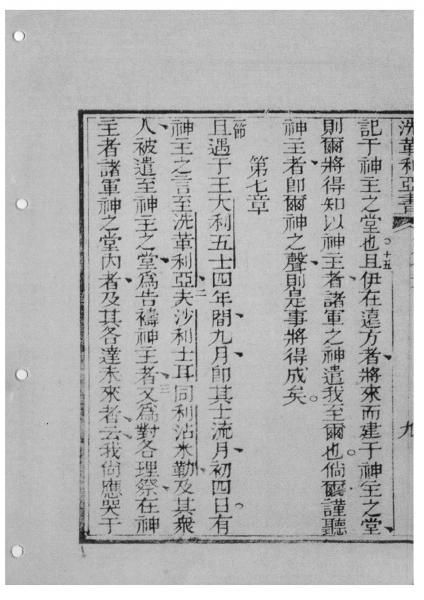 洗華利亞書 九
記于神主之堂也十五且伊在遠方者將來而建于神主之堂
則爾將得知以神主者諸軍之神遣我至爾也倘爾謹聽
神主者卽爾神之聲則是事將得成矣
第七章
一節且遇于王大利五士四年間九月卽其士流月初四日有
神主之言至洗華利亞夫二沙利士耳同利沾米勒及其衆
人被遣至神主之堂爲告禱神主者三又爲對各理祭在神
主者諸軍神之堂內者及其各達未來者云我尙應哭于